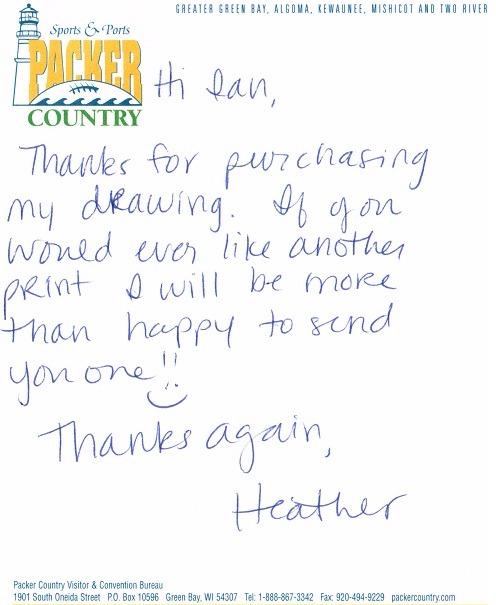 GREATER GREEN BAY, ALGOMA, KEWAUNEE, MISHICOT AND TWO RIVER
Sports & Ports
PACKER
COUNTRY
Hi Ian,
Thanks for purchasing
my drawing. If you
would ever like another
print I will be more
than happy to send
you one!!
Thanks again,
Heather
Packer Country Visitor & Convention Bureau
1901 South Oneida Street P.O. Box 10596 Green Bay, WI 54307 Tel: 1-888-867-3342 Fax: 920-494-9229 packercountry.com